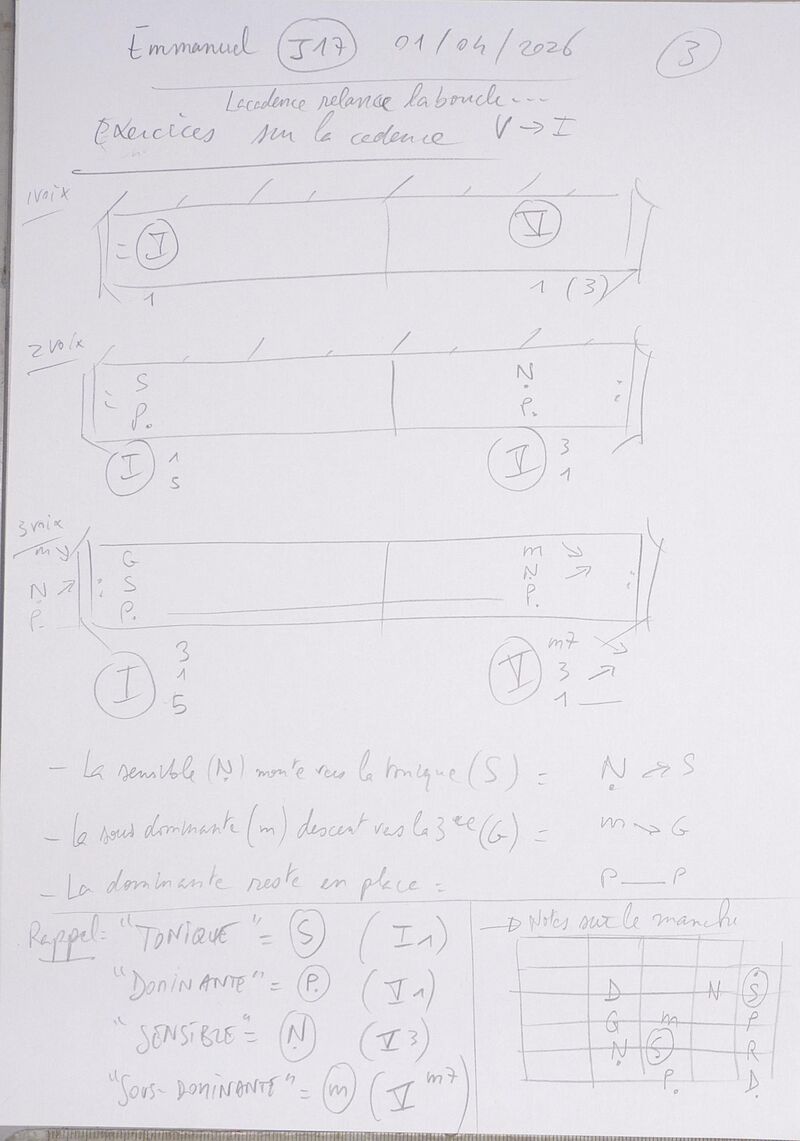 Emmanuel J17 01/04/2026 3
La cadence relance la boucle...
Exercices sur la cedence V → I
1 voix
I V
1 1 (3)
2 voix
S N.
P. P.
I 1 V 3
5 1
3 voix
m ↘ G m ↘
N. ↗ S N. ↗
P. P. P.
I 3 V m7 ↘
1 3 ↗
5 1 —
- La sensible (N.) monte vers la tonique (S) = N. ↗ S
- La sous dominante (m) descent vers la 3ce (G) = m ↘ G
- La dominante reste en place = P — P
Rappel = "TONIQUE" = S (I1)
"DOMINANTE" = P. (V1)
"SENSIBLE" = N. (V3)
"SOUS-DOMINANTE" = m (V m7)
→ Notes sur le manche
D N Ṡ
G m P
N. S R
P. D.